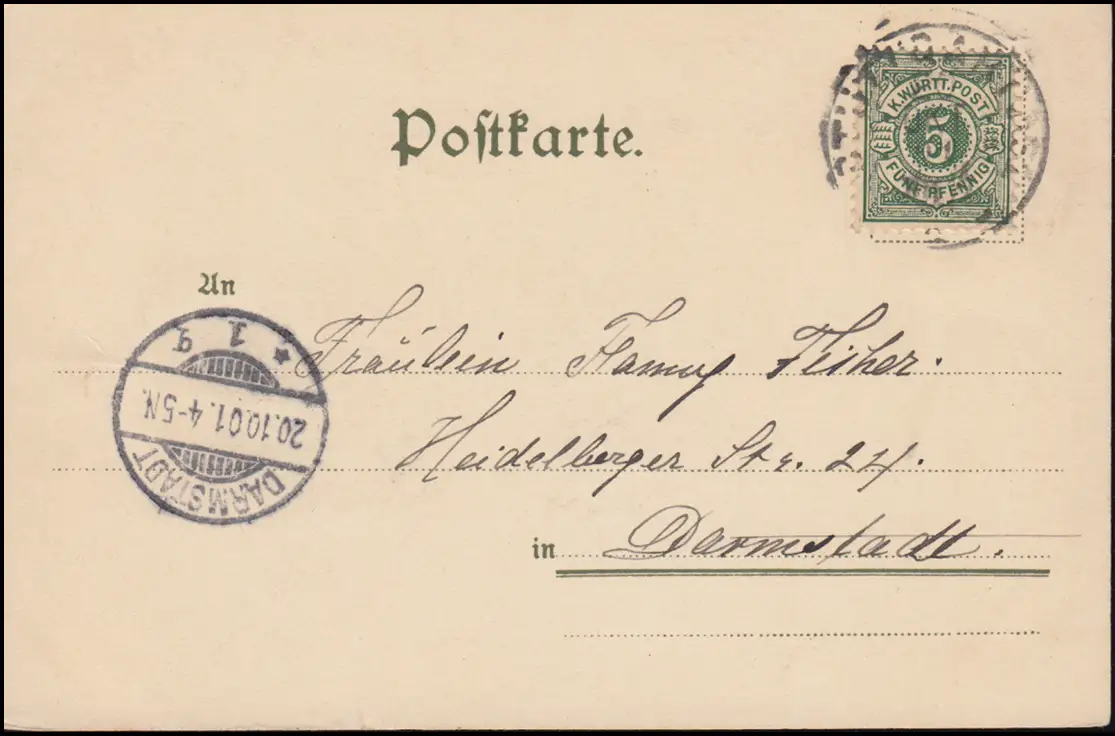 Postkarte.
K. WÜRTT. POST
5
FÜNF PFENNIG
An
Fräulein Fanny Fisher.
Heidelberger Str. 24.
in Darmstadt.
DARMSTADT
20.10.01. 4-5N.
* 1